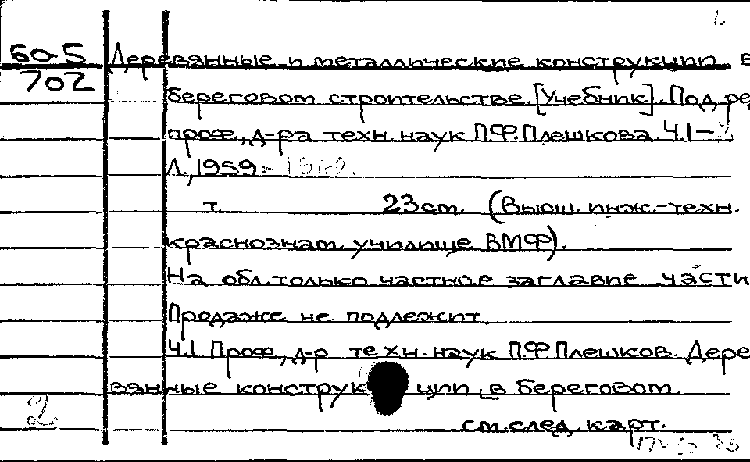 60-5
702
Деревянные и металлические конструкции в
береговом строительстве [Учебник]. Под ред
проф., д-ра техн. наук П.Ф. Плешкова Ч.1-2
Л., 1959-1962.
т. 23 см. (Высш. инж.-техн.
краснознам. училище ВМФ).
На обл. только частное заглавие части
Продаже не подлежит
Ч.1 Проф., д-р техн. наук П.Ф Плешков. Дере
вянные конструкции в береговом.
2
см. след. карт.